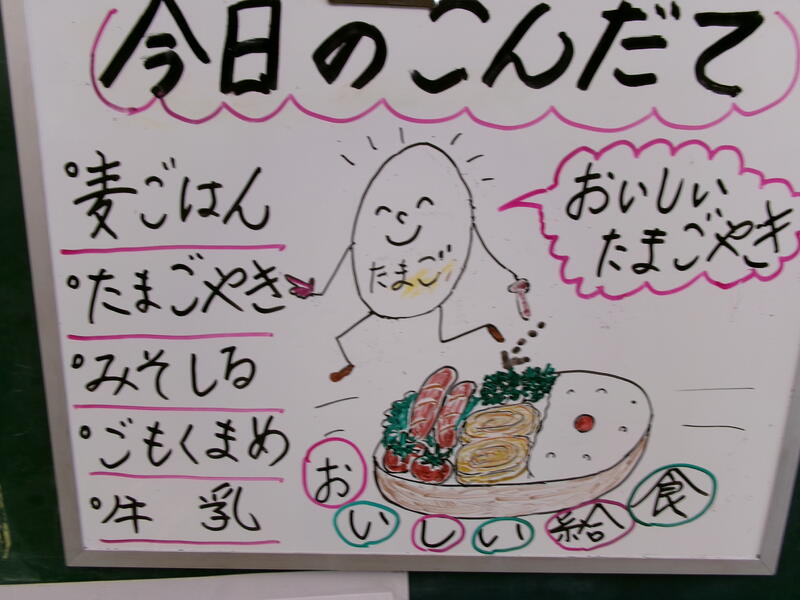 今日のこんだて
麦ごはん
たまごやき
みそしる
ごもくまめ
牛乳
たまご
おいしい
たまごやき
おいしい給食